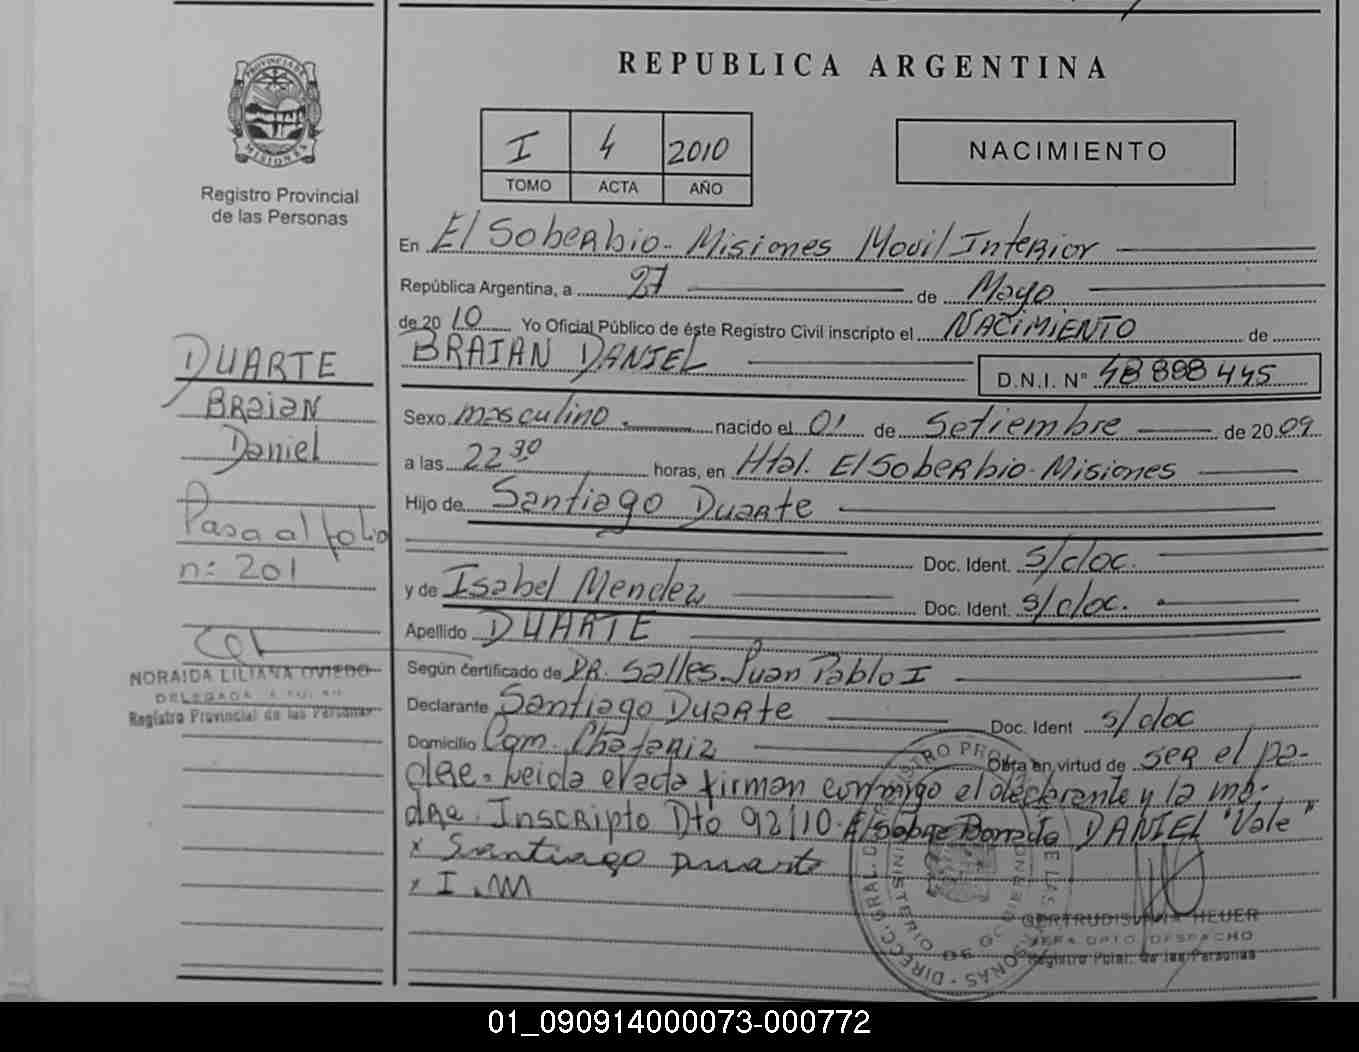 REPUBLICA ARGENTINA
PROVINCIA DE MISIONES
Registro Provincial
de las Personas
I 4 2010
TOMO ACTA AÑO
NACIMIENTO
En El Soberbio - Misiones Movil Interior
República Argentina, a 27 de Mayo
de 2010 Yo Oficial Público de éste Registro Civil inscripto el NACIMIENTO de
BRAIAN DANIEL
D.N.I. N° 48 898 445
Sexo masculino nacido el 01 de Setiembre de 2009
a las 22 30 horas, en Htal. El Soberbio - Misiones
Hijo de Santiago Duarte
Doc. Ident. s/doc.
y de Isabel Mendez Doc. Ident. s/doc.
Apellido DUARTE
Según certificado de DR. Salles Juan Pablo I
Declarante Santiago Duarte Doc. Ident s/doc
Domicilio Com. Chafariz Obra en virtud de ser el pa-
dre. Leida el acta firman conmigo el declarante y la ma-
dre Inscripto Dto 92/10. El sobre Borrado DANIEL "Vale"
x Santiago Duarte
x I . M
DUARTE
Braian
Daniel
Pasa al folio
n: 201
NORAIDA LILIANA OVIEDO
DELEGADA TITULAR
Registro Provincial de las Personas
GERTRUDIS HEUER
JEFA DPTO. DESPACHO
Registro Pcial. de las Personas
DIRECC. GRAL. DE REGISTRO PROV. DE LAS PERSONAS
MINISTERIO DE GOBIERNO
01_090914000073-000772